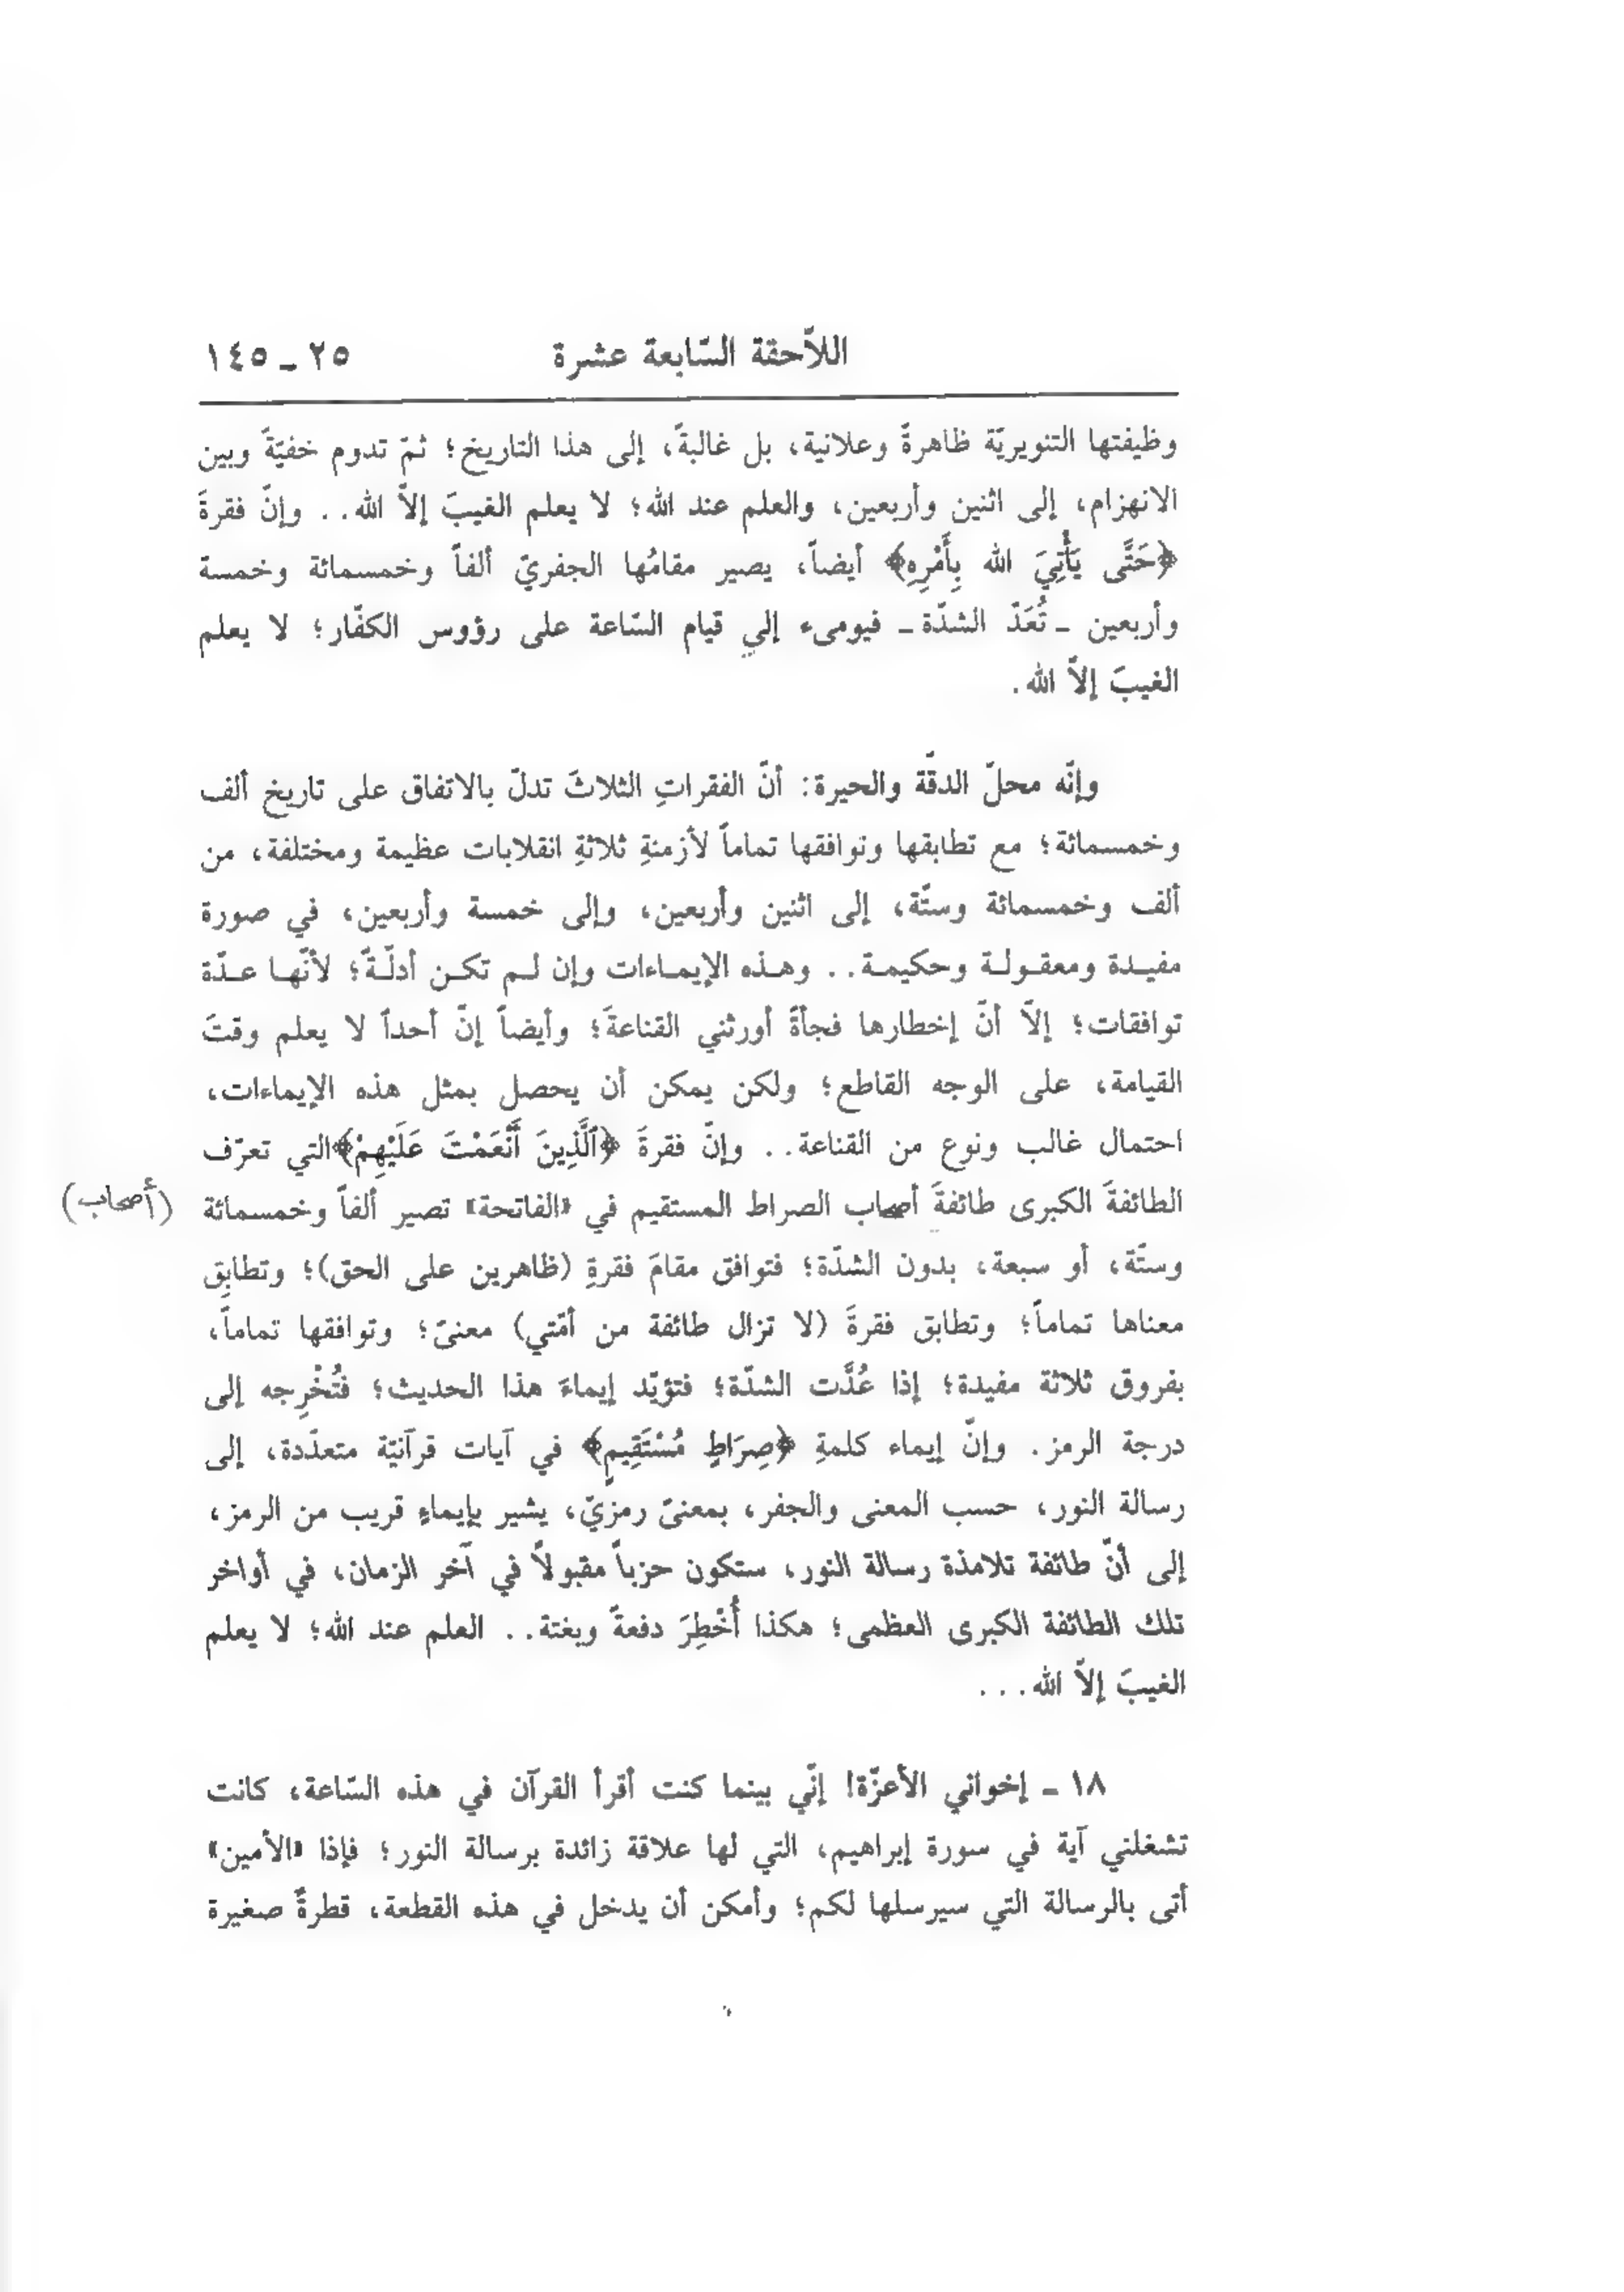 اللاّحقة السّابعة عشرة ٢٥ ـ ١٤٥
وظيفتها التنويريّة ظاهرةً وعلانية، بل غالبةً، إلى هذا التاريخ؛ ثمّ تدوم خفيّةً وبين
الانهزام، إلى اثنين وأربعين، والعلم عند الله؛ لا يعلم الغيبَ إلاّ الله.. وإنّ فقرةَ
﴿حَتَّى يَأْتِيَ الله بِأَمْرِهِ﴾ أيضاً، يصير مقامُها الجفريّ ألفاً وخمسمائة وخمسة
وأربعين ـ تُعَدّ الشدّة ـ فيومىء إلي قيام السّاعة على رؤوس الكفّار؛ لا يعلم
الغيبَ إلاّ الله.
وإنّه محلّ الدقّة والحيرة: أنّ الفقراتِ الثلاثَ تدلّ بالاتفاق على تاريخ ألف
وخمسمائة؛ مع تطابقها وتوافقها تماماً لأزمنةِ ثلاثةِ انقلابات عظيمة ومختلفة، من
ألف وخمسمائة وستّة، إلى اثنين وأربعين، وإلى خمسة وأربعين، في صورة
مفيـدة ومعقـولـة وحكيمـة.. وهـذه الإيمـاءات وإن لـم تكـن أدلّـةً؛ لأنّهـا عـدّة
توافقات؛ إلاّ أنّ إخطارها فجأةً أورثني القناعةَ؛ وأيضاً إنّ أحداً لا يعلم وقتَ
القيامة، على الوجه القاطع؛ ولكن يمكن أن يحصل بمثل هذه الإيماءات،
احتمال غالب ونوع من القناعة.. وإنّ فقرةَ ﴿ٱلَّذِينَ أَنْعَمْتَ عَلَيْهِمْ﴾التي تعرّف
الطائفةَ الكبرى طائفةَ أصحاب الصراط المستقيم في «الفاتحة» تصير ألفاً وخمسمائة (أصحاب)
وستّة، أو سبعة، بدون الشدّة؛ فتوافق مقامَ فقرةِ (ظاهرين على الحق)؛ وتطابِق
معناها تماماً؛ وتطابق فقرةَ (لا تزال طائفة من أمّتي) معنىً؛ وتوافقها تماماً،
بفروق ثلاثة مفيدة؛ إذا عُدَّت الشدّة؛ فتؤيّد إيماءَ هذا الحديث؛ فتُخْرِجه إلى
درجة الرمز. وإنّ إيماء كلمةِ ﴿صِرَاطٍ مُسْتَقِيمٍ﴾ في آيات قرآنيّة متعدّدة، إلى
رسالة النور، حسب المعنى والجفر، بمعنىً رمزيّ، يشير بإيماءٍ قريب من الرمز،
إلى أنّ طائفة تلامذة رسالة النور، ستكون حزباً مقبولاً في آخر الزمان، في أواخر
تلك الطائفة الكبرى العظمى؛ هكذا أُخْطِرَ دفعةً وبغتة.. العلم عند الله؛ لا يعلم
الغيبَ إلاّ الله...
١٨ ـ إخواني الأعزّة! إنّي بينما كنت أقرأ القرآن في هذه السّاعة، كانت
تشغلني آية في سورة إبراهيم، التي لها علاقة زائدة برسالة النور؛ فإذا «الأمين»
أتى بالرسالة التي سيرسلها لكم؛ وأمكن أن يدخل في هذه القطعة، قطرةٌ صغيرة